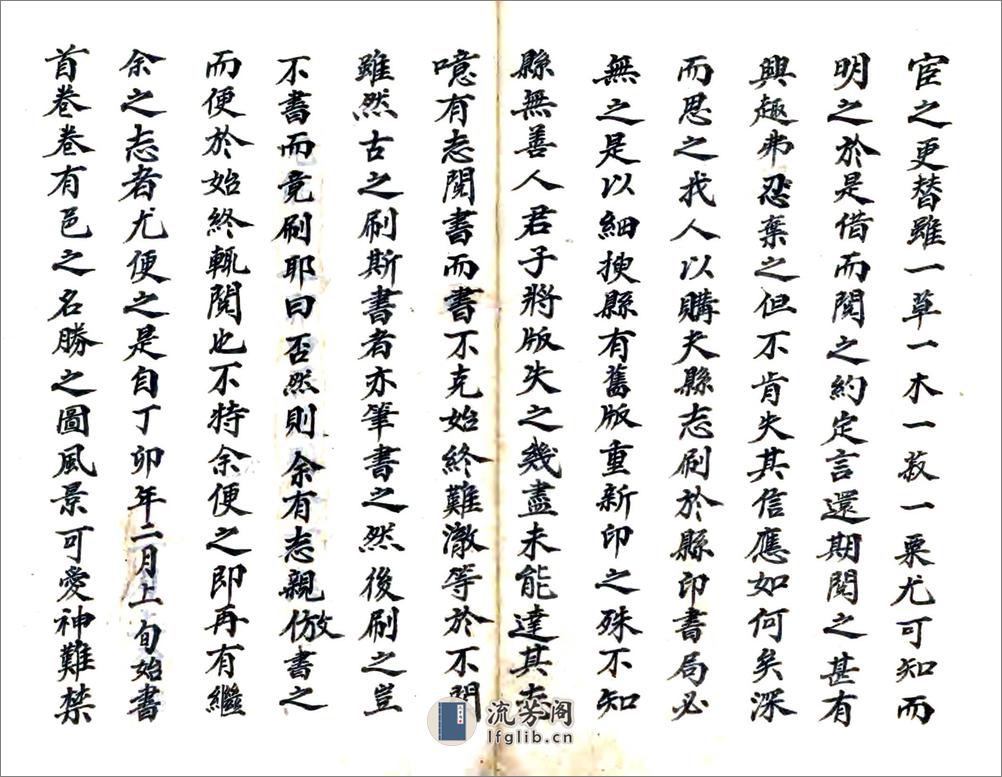 宦之更替雖一草一木一菽一粟尤可知而
明之於是借而閱之約定言還期閱之甚有
興趣弗忍棄之但不肯失其信應如何矣深
而思之找人以購夫縣志刷於縣印書局必
無之是以細搜縣有舊版重新印之殊不知
縣無善人君子將版失之幾盡未能達其志
噫有志閱書而書不克始終難澈等於不閱
雖然古之刷斯書者亦筆書之然後刷之豈
不書而竟刷耶曰否然則余有志親倣書之
而便於始終輒閱也不特余便之即再有繼
余之志者尤便之是自丁卯年二月上旬始書
首卷卷有邑之名勝之圖風景可愛神難禁
流芳阁
lfglib.cn